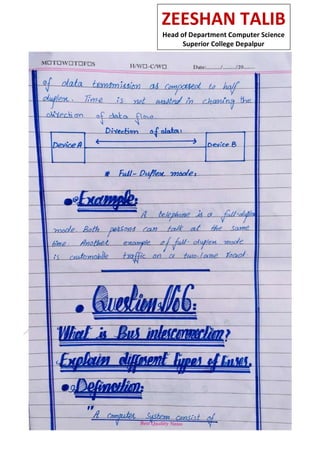 ZEESHAN TALIB
Head of Department Computer Science
Superior College Depalpur
M□T□W□T□F□S H/W□-C/W□ Date:____/____/20___
of data transmission as compared to half
duplex. Time is not wasted in changing the
direction of data flow.
Direction of data:
Device A Device B
* Full-Duplex mode:
Example:
A telephone is a full-duplex
mode. Both persons can talk at the same
time. Another example of full-duplex mode
is automobile traffic on a two-lane road.
Question No6:
What is Bus interconnection?
Explain different types of buses.
Definition:
"A computer system consist of
Best Quality Notes